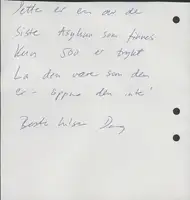 Dette er en av de
siste som finnes
Kun 500 er trykt
La den være som den
er - åpne den ikke!
Beste hilsen